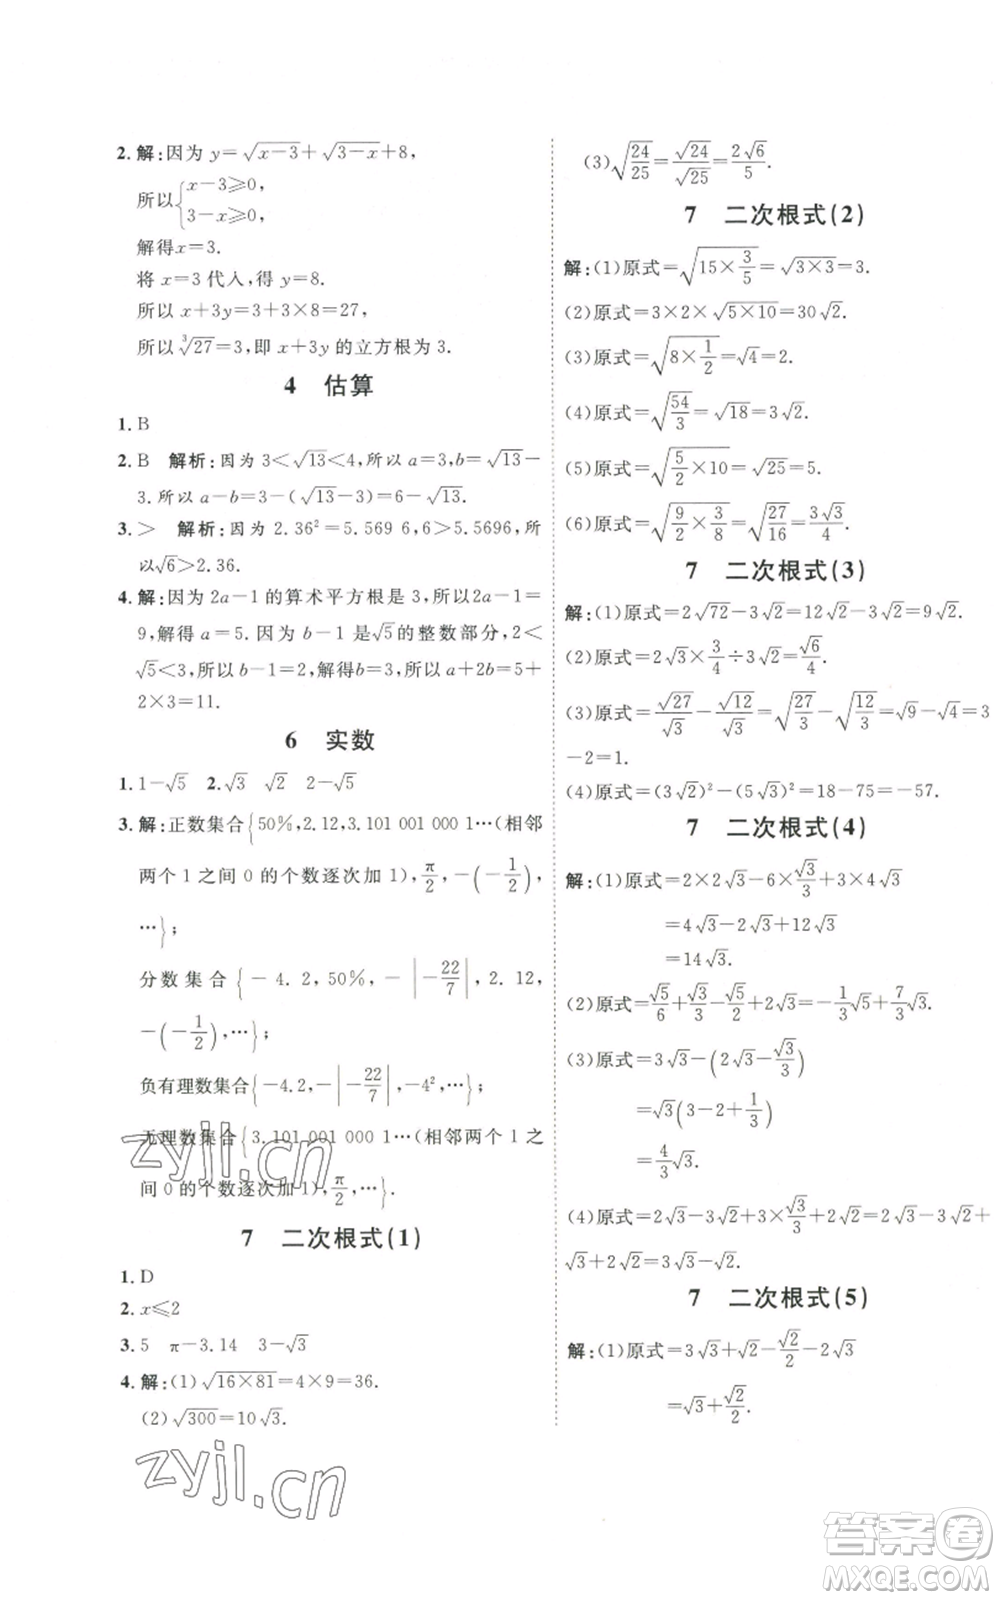 2. 解:因为 y=√(x-3)+√(3-x)+8,
所以{x-3⩾0,
3-x⩾0,
解得x=3.
将 x=3 代人,得 y=8.
所以 x+3y=3+3×8=27,
所以 ³√27=3,即 x+3y 的立方根为 3.
4 估算
1. B
2. B 解析:因为 3<√13<4,所以 a=3,b=√13-
3.所以 a-b=3-(√13-3)=6-√13.
3. > 解析:因为 2.36²=5.569 6,6>5.5696,所
以√6>2.36.
4. 解:因为2a-1的算术平方根是3,所以2a-1=
9,解得 a=5.因为 b-1 是√5的整数部分,2<
√5<3,所以 b-1=2,解得 b=3,所以 a+2b=5+
2×3=11.
6 实数
1. 1-√5 2. √3 √2 2-√5
3. 解:正数集合{50%,2.12,3.101 001 000 1…(相邻
两个 1 之间 0 的个数逐次加 1),π/2,-(-1/2),
…};
分数集合{-4.2,50%,-|-22/7|,2.12,
-(-1/2),…};
负有理数集合{-4.2,-|-22/7|,-4²,…};
无理数集合{3.101 001 000 1…(相邻两个 1 之
间 0 的个数逐次加 1),π/2,…}.
7 二次根式(1)
1. D
2. x⩽2
3. 5 π-3.14 3-√3
4. 解:(1)√(16×81)=4×9=36.
(2)√300=10√3.
(3)√(24/25)=√24/√25=2√6/5.
7 二次根式(2)
解:(1)原式=√(15×3/5)=√(3×3)=3.
(2)原式=3×2×√(5×10)=30√2.
(3)原式=√(8×1/2)=√4=2.
(4)原式=√(54/3)=√18=3√2.
(5)原式=√(5/2×10)=√25=5.
(6)原式=√(9/2×3/8)=√(27/16)=3√3/4.
7 二次根式(3)
解:(1)原式=2√72-3√2=12√2-3√2=9√2.
(2)原式=2√3×3/4÷3√2=√6/4.
(3)原式=√27/√3-√12/√3=√(27/3)-√(12/3)=√9-√4=3
-2=1.
(4)原式=(3√2)²-(5√3)²=18-75=-57.
7 二次根式(4)
解:(1)原式=2×2√3-6×√3/3+3×4√3
=4√3-2√3+12√3
=14√3.
(2)原式=√5/6+√3/3-√5/2+2√3=-1/3√5+7/3√3.
(3)原式=3√3-(2√3-√3/3)
=√3(3-2+1/3)
=4/3√3.
(4)原式=2√3-3√2+3×√3/3+2√2=2√3-3√2+
√3+2√2=3√3-√2.
7 二次根式(5)
解:(1)原式=3√3+√2-√2/2-2√3
=√3+√2/2.
zyjl.cn
zyjl.cn
答案卷
MXQE.COM